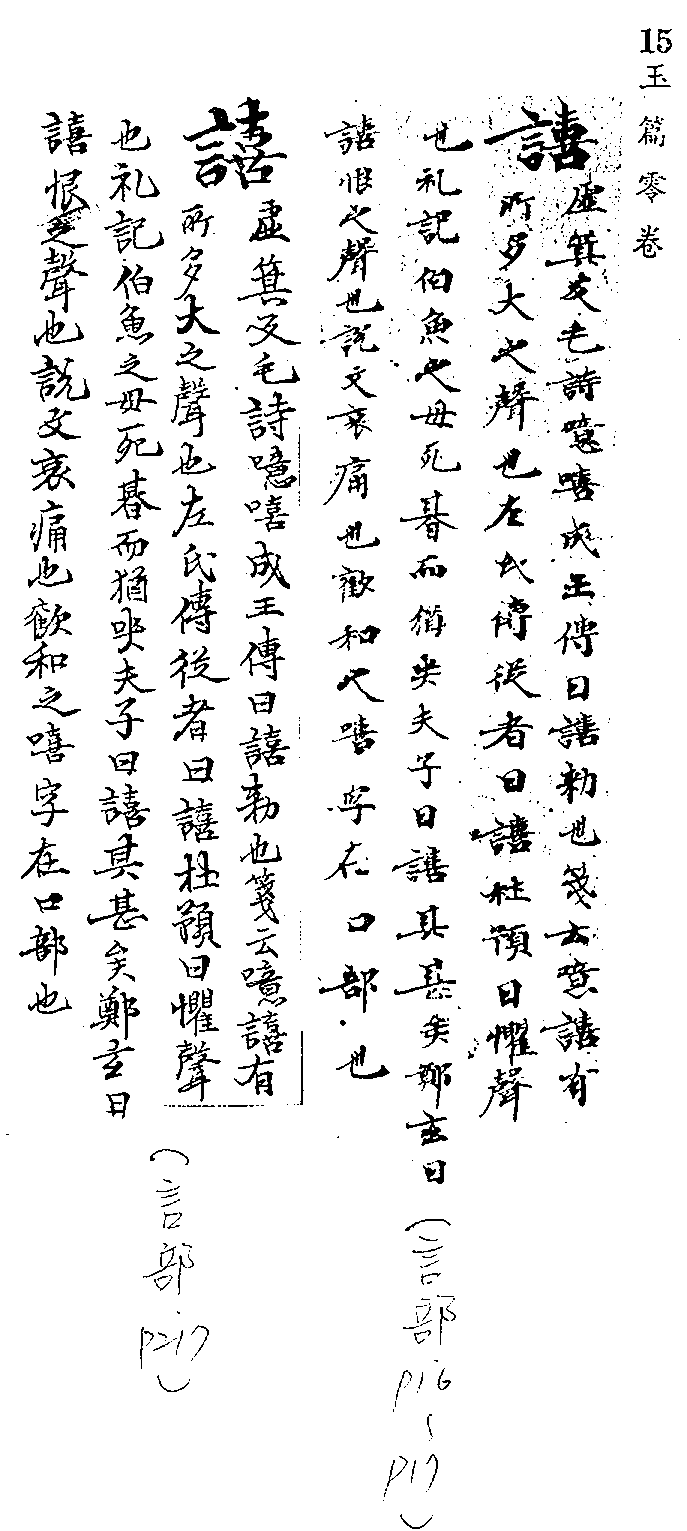 15玉篇零卷
譆
虛箕反毛詩噫嘻成王傳曰譆勑也箋云噫譆有
所多大之聲也左氏傳從者曰譆杜預曰懼聲
也礼記伯魚之母死朞而猶哭夫子曰譆其甚矣鄭玄曰
譆恨之聲也說文哀痛也歡和之嘻字在口部也
(言部p16~p17)
譆
虛箕反毛詩噫嘻成王傳曰譆勑也箋云噫譆有
所多大之聲也左氏傳從者曰譆杜預曰懼聲
也礼記伯魚之母死朞而猶哭夫子曰譆其甚矣鄭玄曰
譆恨之聲也說文哀痛也歡和之嘻字在口部也
(言部p217)